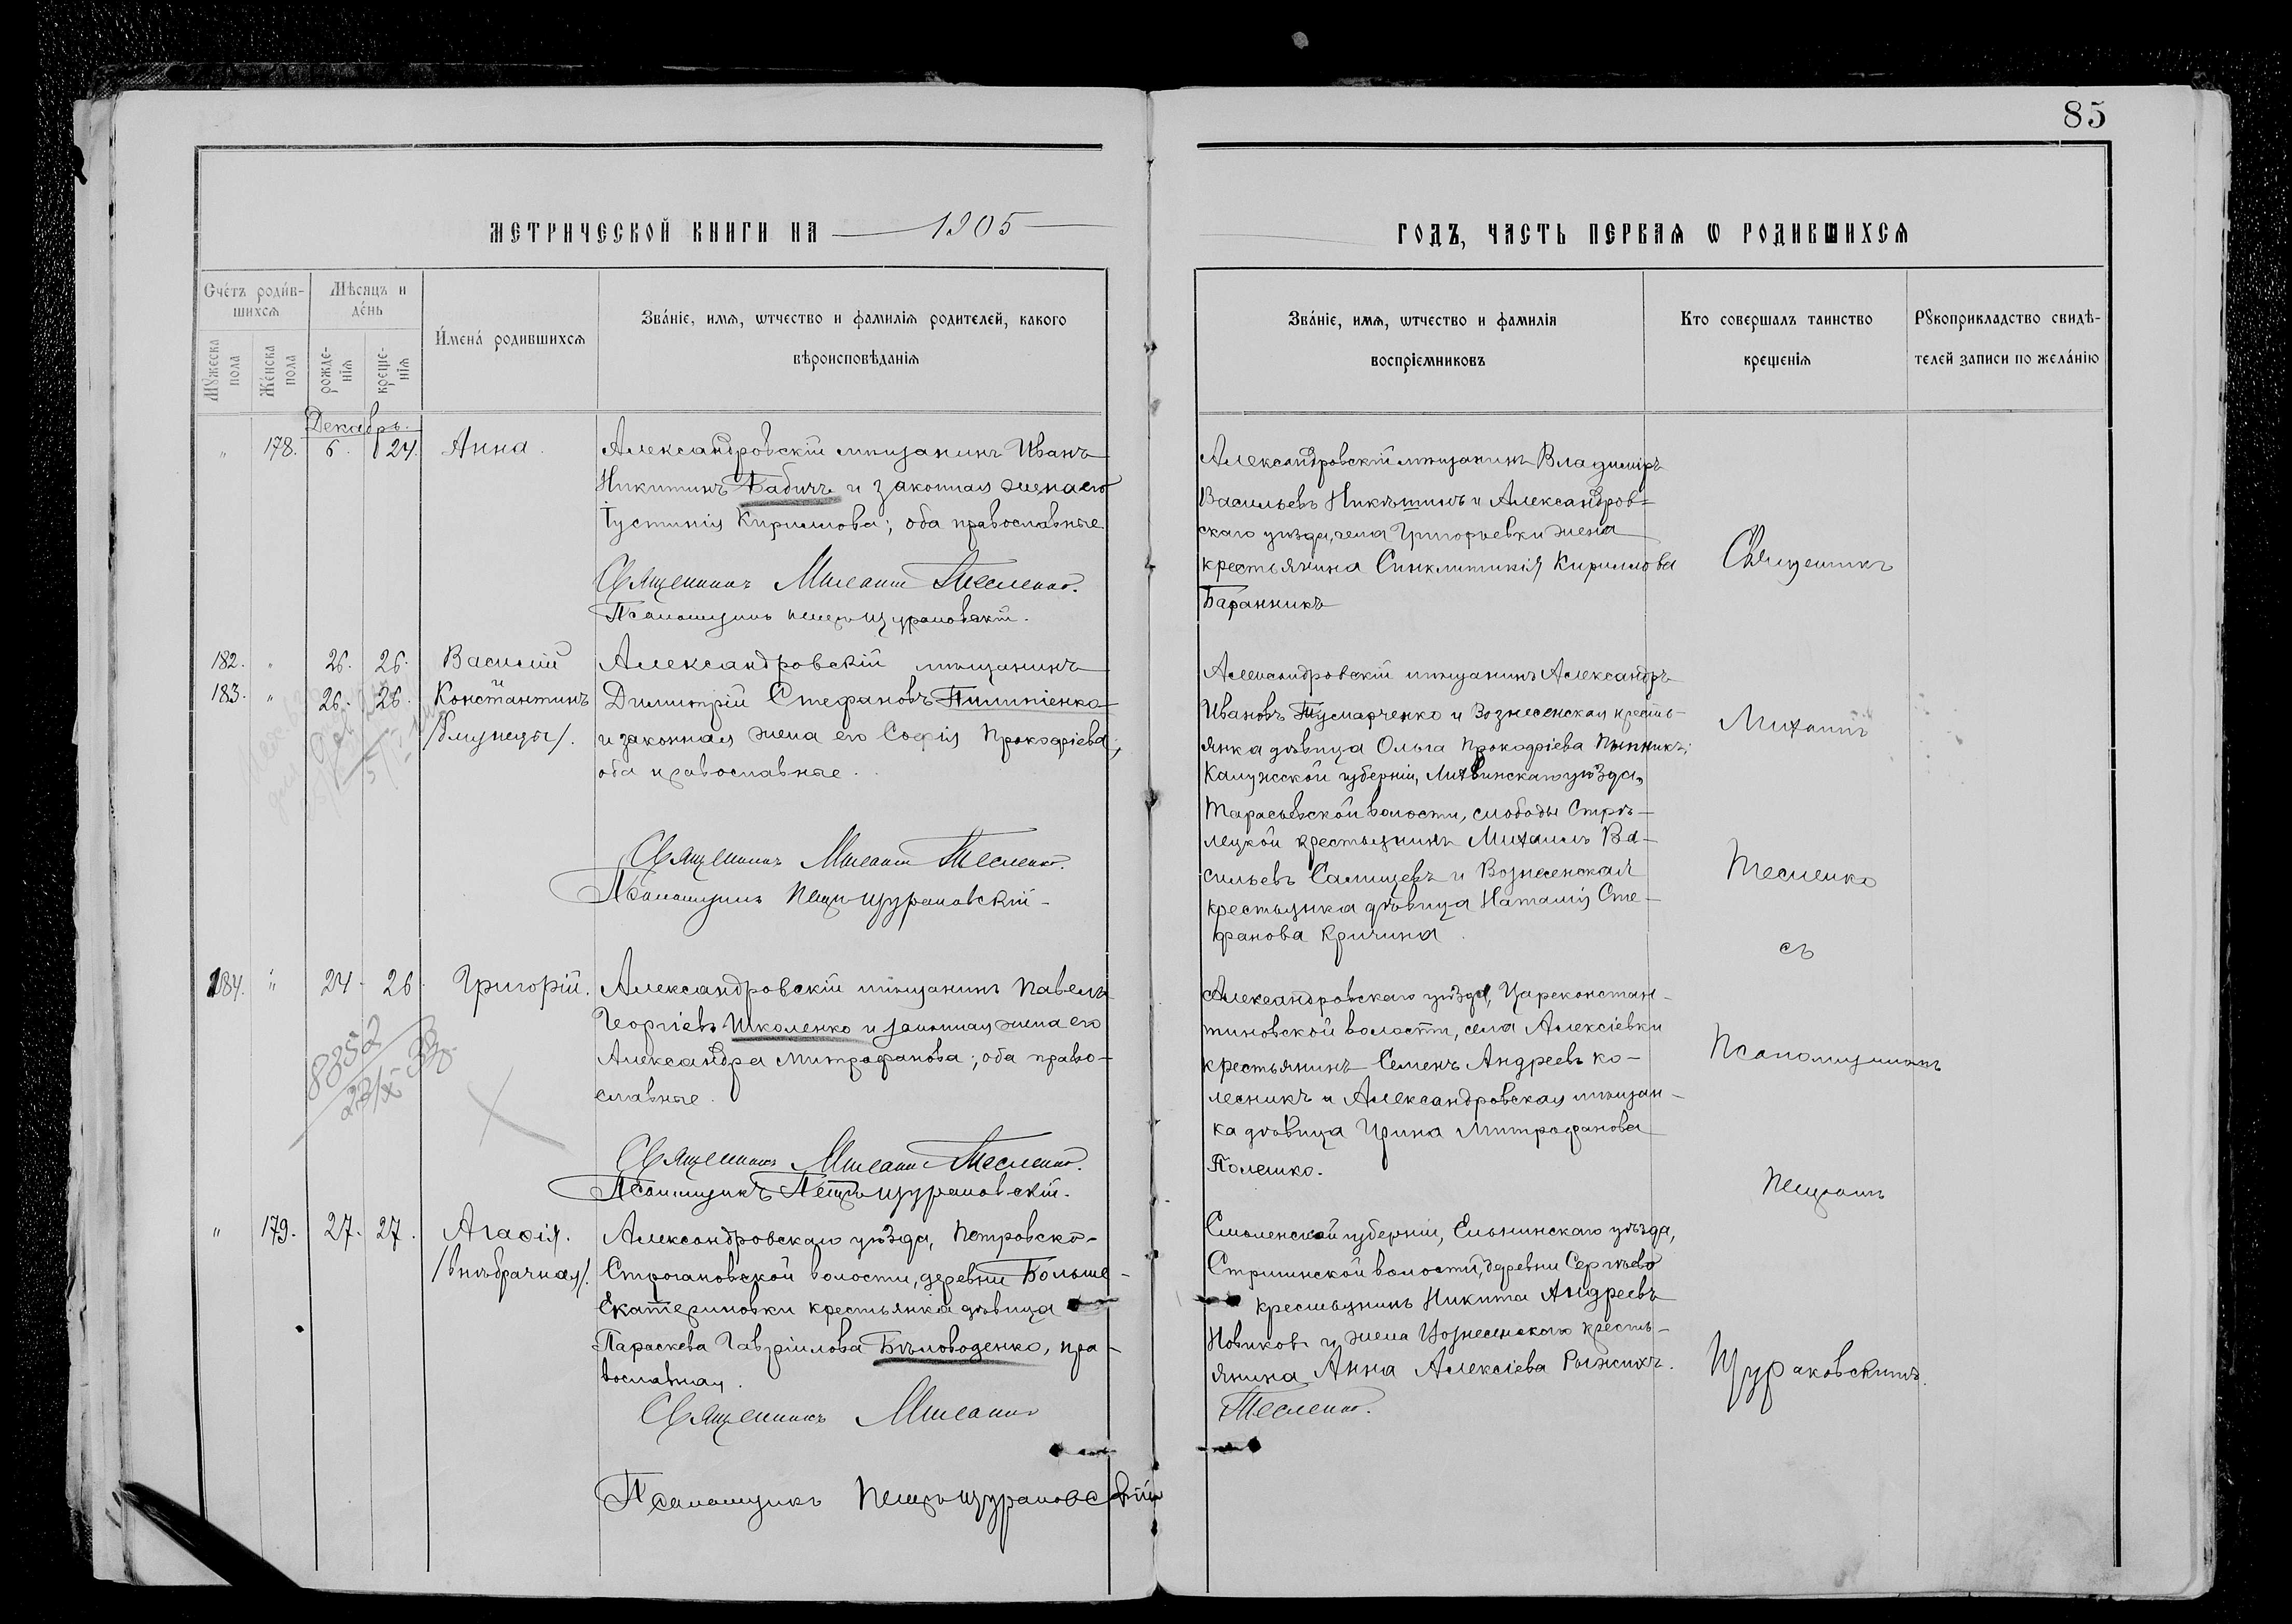 85
МЕТРИЧЕСКОЙ КНИГИ НА 1905
ГОДЪ, ЧАСТЬ ПЕРВАЯ Ѡ РОДИВШИХСЯ
Счетъ родив-
шихся
Мѣсяцъ и
день
Имена родившихся
Званіе, имя, ѡтчество и фамилія родителей, какого
вѣроисповѣданія
Мꙋжеска
пола
Женска
пола
рожде-
нія
креще-
нія
Званіе, имя, ѡтчество и фамилія
воспріемниковъ
Кто совершалъ таинство
крещенія
Рꙋкоприкладство свидѣ-
телей записи по желанію
Декабрь.
" 178. 6. 24. Анна.
Александровскій мѣщанинъ Иванъ
Никитинъ Бабичъ и законная жена его
Іустинія Кириллова; оба православные
Священникъ Михаилъ Тесленко.
Псаломщикъ Петръ Щураковскій.
Александровскій мѣщанинъ Владиміръ
Васильевъ Никѣтинъ и Александров=
скаго уѣзда, села Григорьевки жена
крестьянина Синклитикія Кириллова
Баранникъ
182. " 26. 26. Василій
183. " 26. 26. Константинъ
/близнецы/.
Александровскій мѣщанинъ
Димитрій Стефановъ Пилипенко
и законная жена его Софія Прокофіева;
оба православные.
Священникъ Михаилъ Тесленко.
Псаломщикъ Петръ Щураковскій.
Александровскій мѣщанинъ Александръ
Ивановъ и Вознесенская кресть-
янка дѣвица Ольга Прокофіева
Калужской губерніи, Лихвинскаго уѣзда,
волости, слободы Стрѣ-
лецкой крестьянинъ Михаилъ Ва-
сильевъ и Вознесенская
крестьянка дѣвица Наталія Сте-
фанова Кричина.
184. " 24. 26. Григорій.
Александровскій мѣщанинъ Павелъ
Георгіевъ Школенко и законная жена его
Александра Митрофанова; оба право-
славные.
8852
Священникъ Михаилъ Тесленко.
Псаломщикъ Петръ Щураковскій.
Александровскаго уѣзда, Цареконстан-
тиновской волости, села Алексіевки
крестьянинъ Семенъ Андреевъ Ко-
лесникъ и Александровская мѣщан-
ка дѣвица Ирина Митрофанова
" 179. 27. 27. Агафія.
/внѣбрачная/.
Александровскаго уѣзда, Петровско-
Строгановской волости, деревни Больше-
Екатериновки крестьянка дѣвица
Параскева Гавріилова Бѣловоденко, пра-
вославная.
Священникъ Михаилъ
Тесленко.
Псаломщикъ Петръ Щураковскій
Смоленской губерніи, Ельнинскаго уѣзда,
волости, деревни Сергѣево
крестьянинъ Никита Андреевъ
Новиковъ и жена Вознесенскаго кресть-
янина Анна Алексіева Рыжихъ.
Священникъ
Михаилъ
Тесленко
съ
Псаломщикомъ
Петромъ
Щураковскимъ.